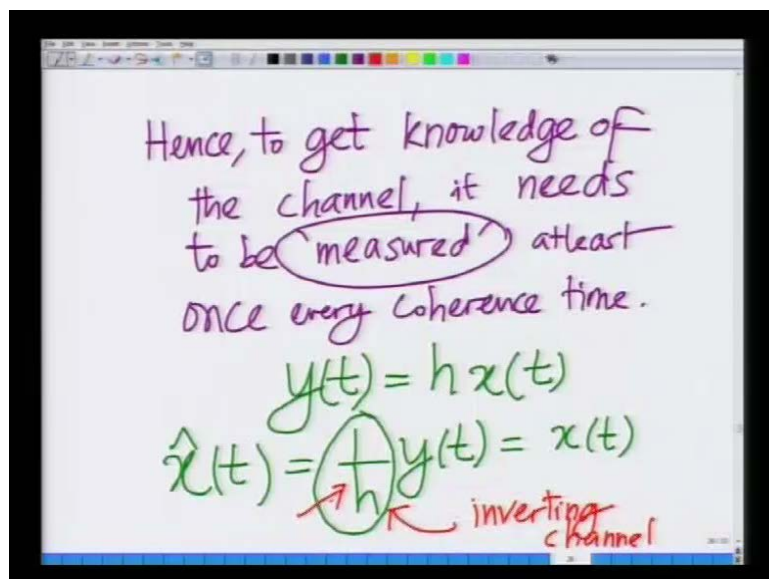 Hence, to get knowledge of
the channel, it needs
to be 'measured' atleast
once every coherence time.
y(t) = h x(t)
x̂(t) = 1/h y(t) = x(t)
inverting
channel